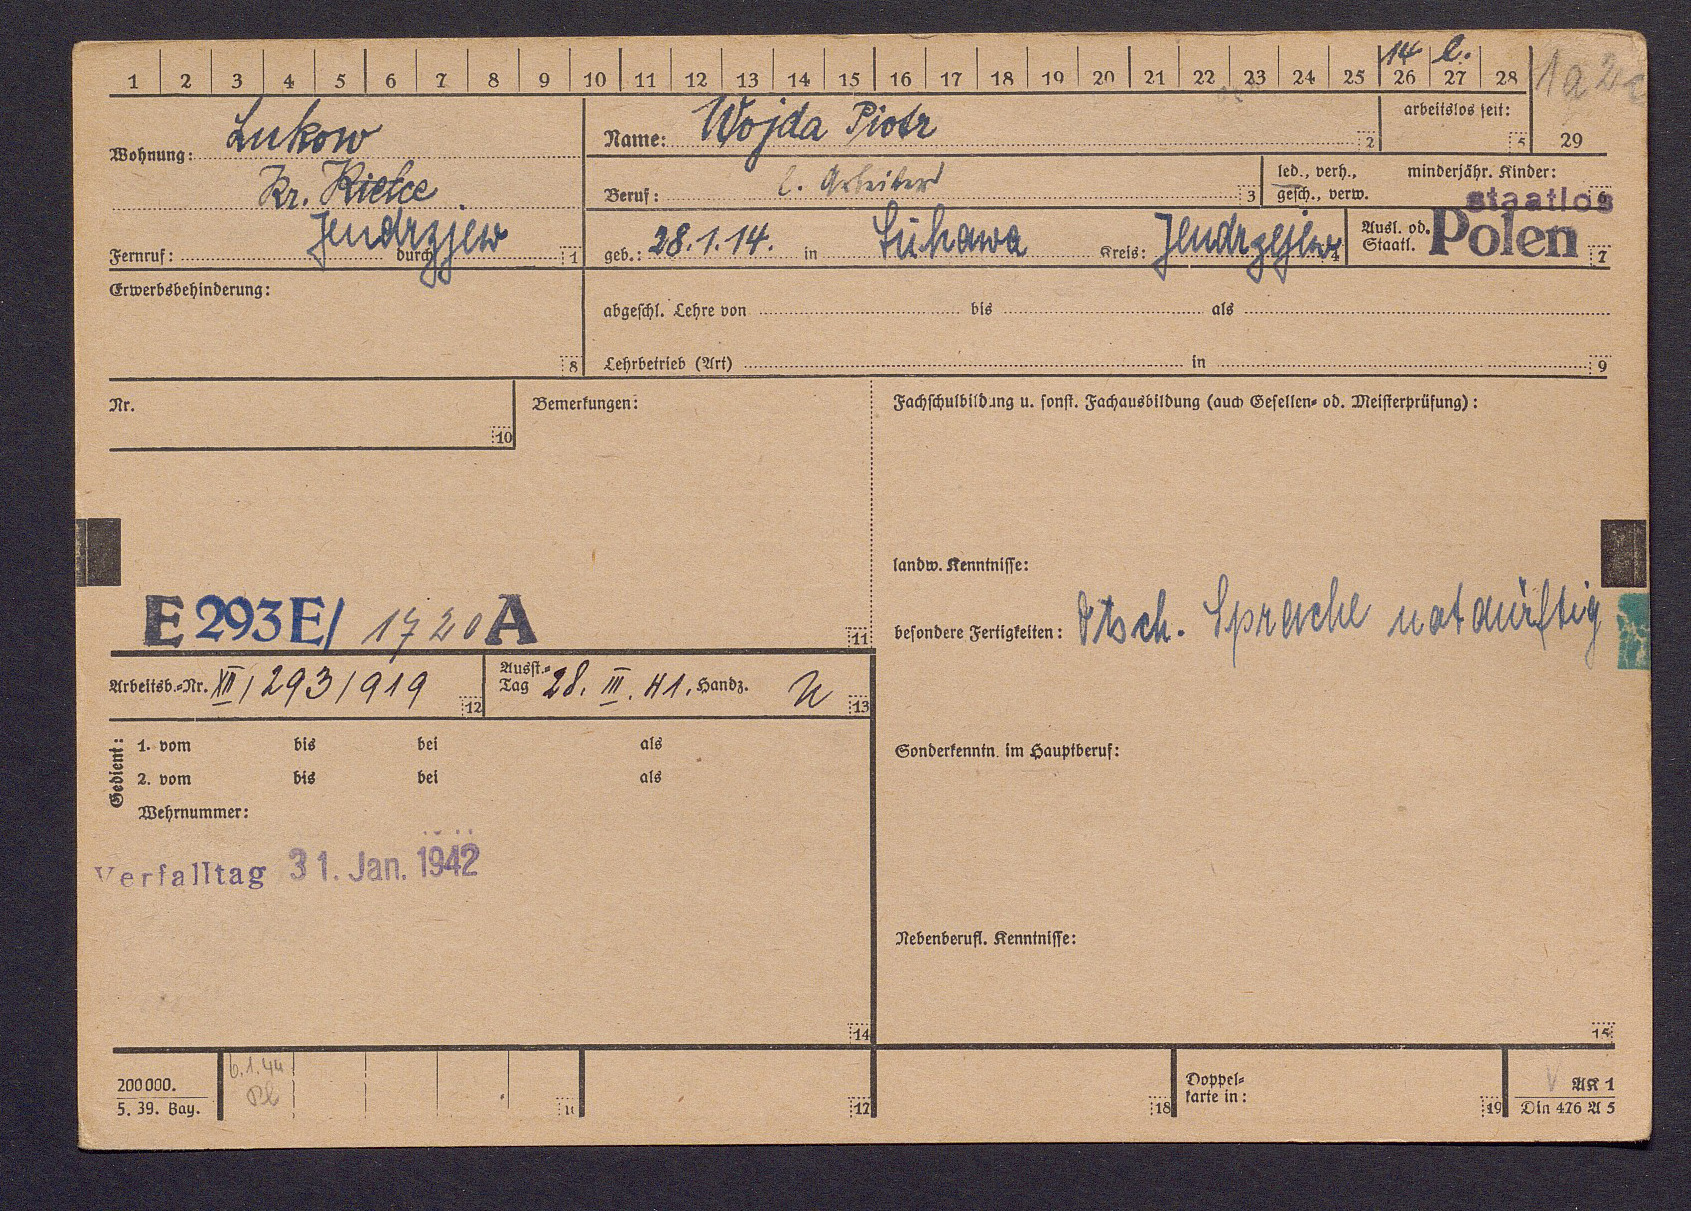 14 l.
1 2 3 4 5 6 7 8 9 10 11 12 13 14 15 16 17 18 19 20 21 22 23 24 25 26 27 28
29
Wohnung: Lukow
Kr. Kielce
Jendrzjew
Fernruf: durch 1
Name: Wojda Piotr 2
arbeitslos seit: 5
Beruf: l. Arbeiter 3
led., verh., gesch., verw.
minderjähr. Kinder:
staatlos
geb.: 28.1.14. in Lukawa Kreis: Jendrzejew 4
Ausl. od. Staatl. Polen 7
Erwerbsbehinderung: 8
abgeschl. Lehre von bis als
Lehrbetrieb (Art) in 9
Nr. 10
Bemerkungen:
Fachschulbildung u. sonst. Fachausbildung (auch Gesellen- od. Meisterprüfung):
landw. Kenntnisse:
E 293 E/ 1720 A 11
besondere Fertigkeiten: Dtsch. Sprache notdürftig
Arbeitsb.-Nr. XII/293/919 12
Ausst.-Tag 28. III. 41. Handz. 13
Gedient:
1. vom bis bei als
2. vom bis bei als
Wehrnummer:
Sonderkenntn. im Hauptberuf:
Verfalltag 31. Jan. 1942
Nebenberufl. Kenntnisse:
14
15
200000.
5. 39. Bay.
6.1.44
17
18
Doppel-
karte in: 19
AK 1
Din 476 A 5